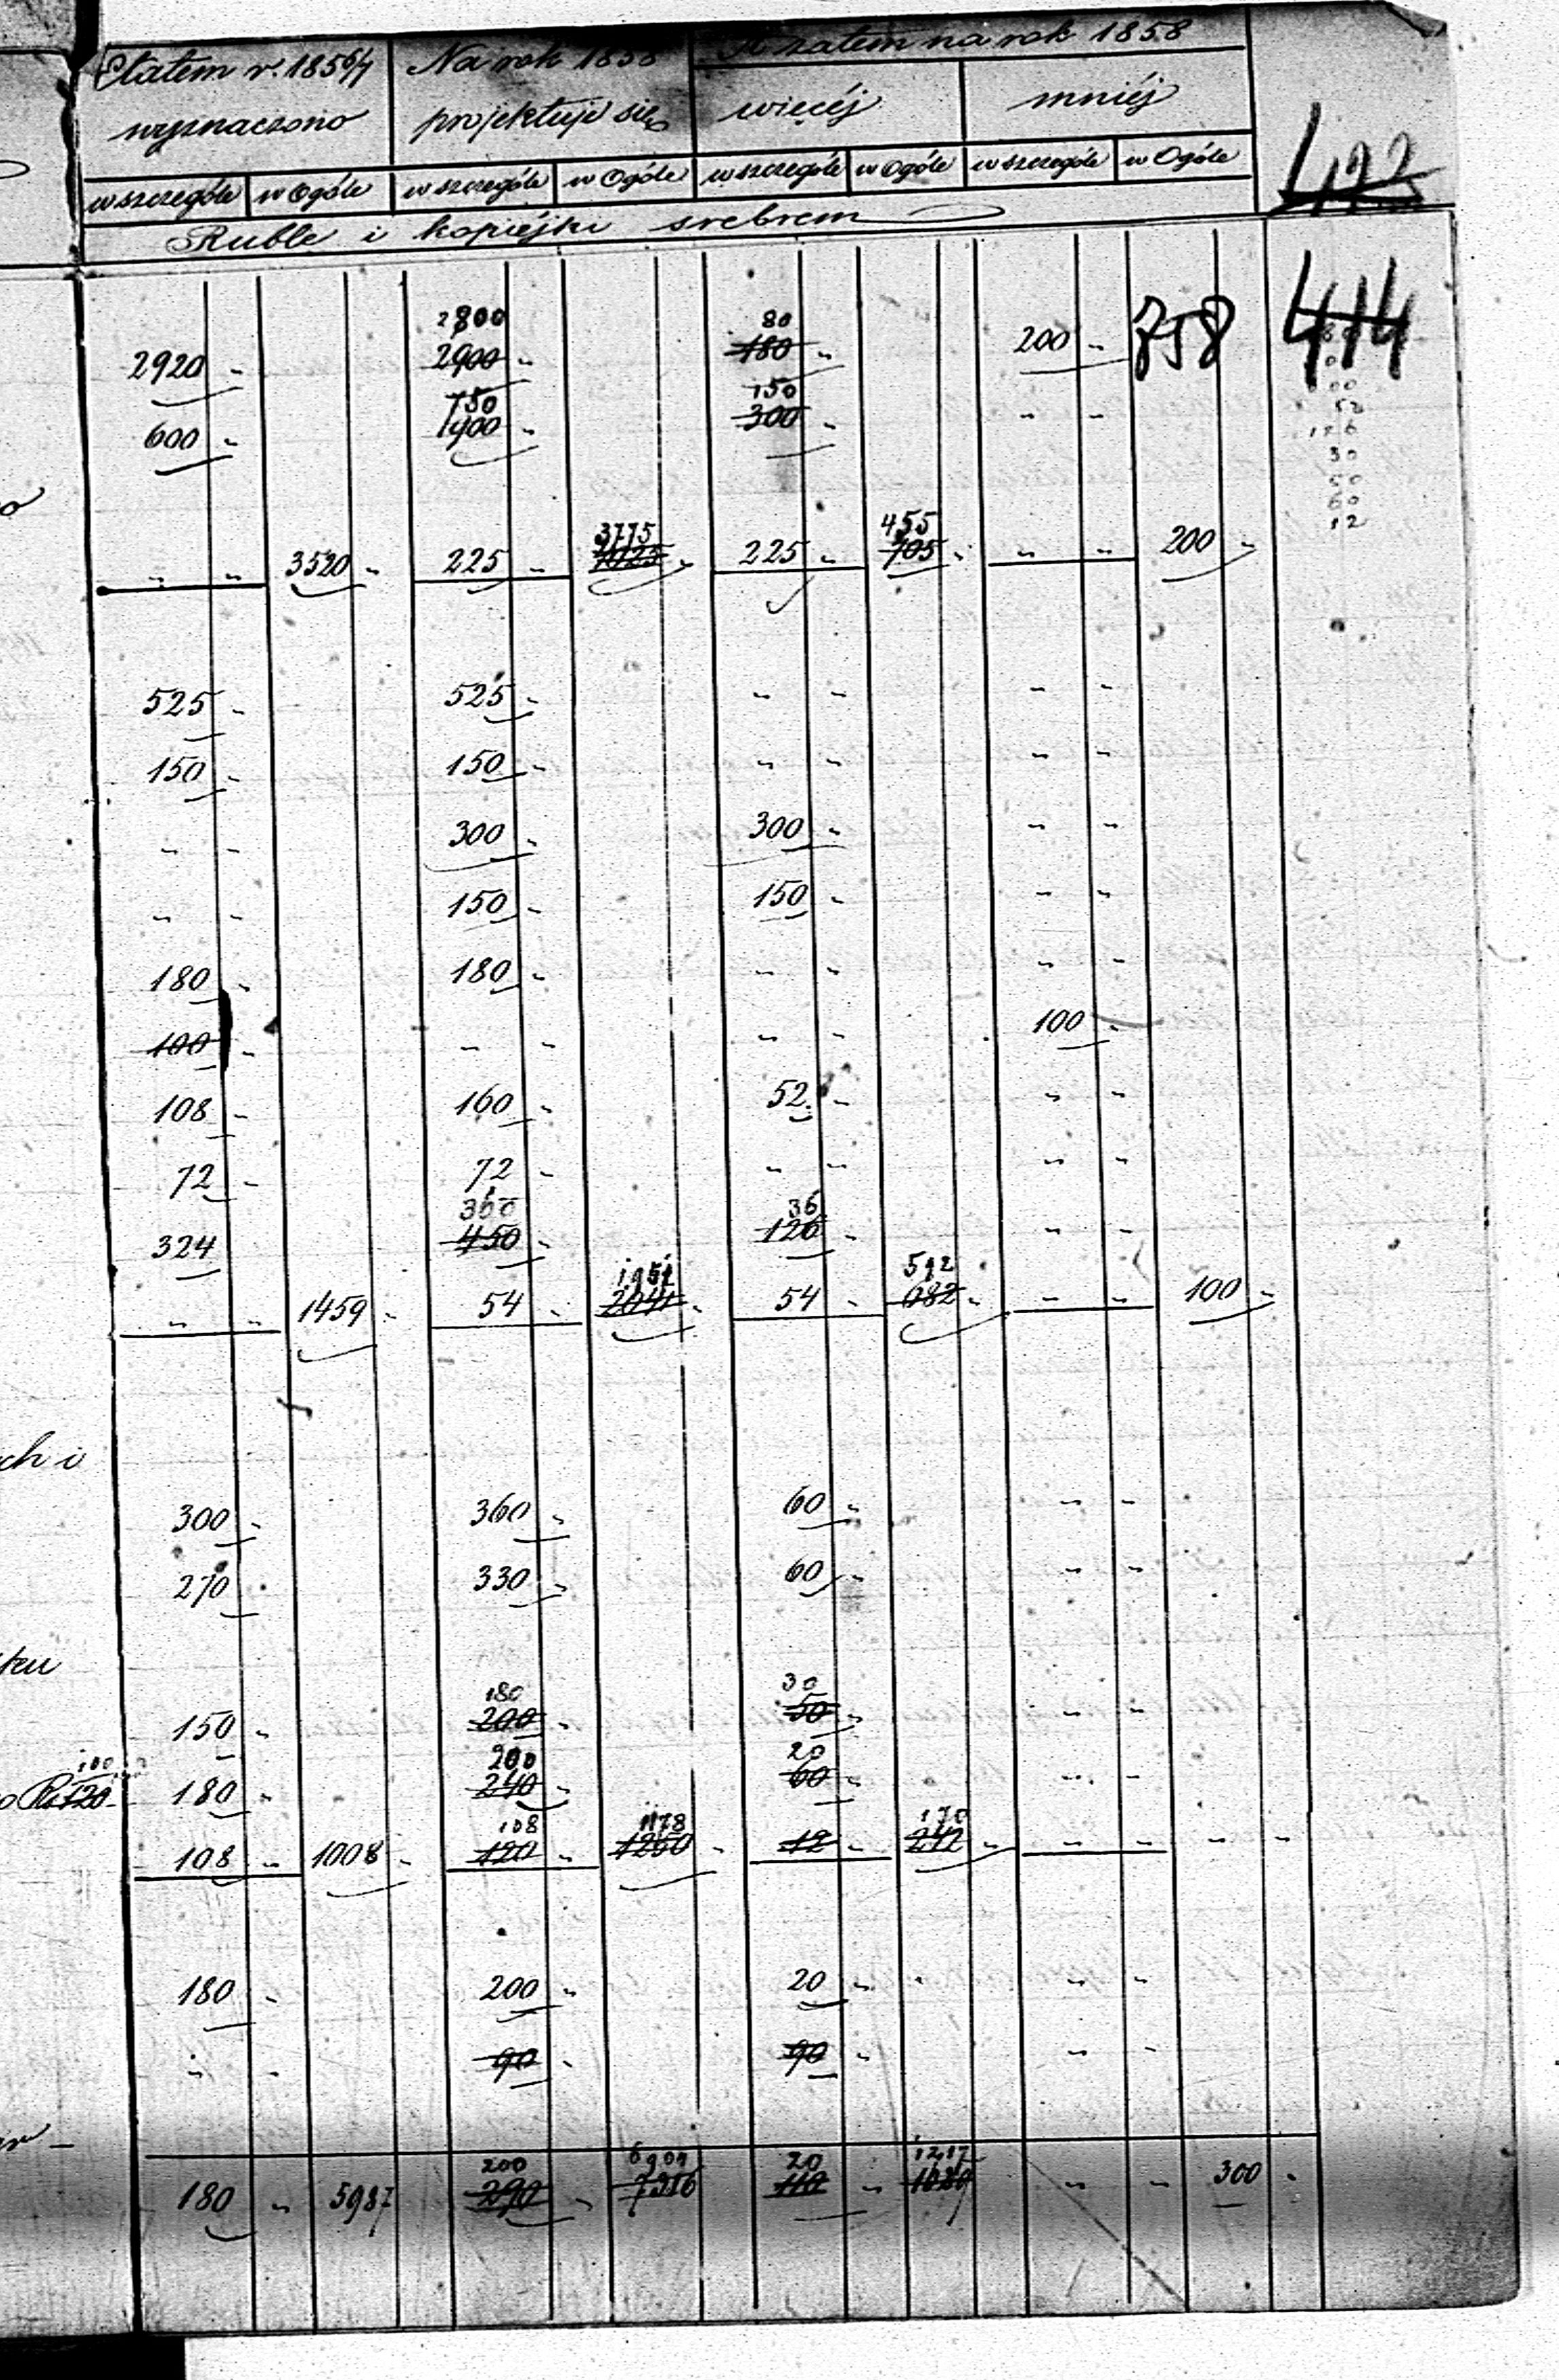 Etatem r. 1856/7 Na rok 1858 A zatem na rok 1858
wyznaczono projektuje się więcéj mniéj
w szczególe w Ogóle w szczególe w Ogóle w szczególe w Ogóle w szczególe w Ogóle 422
Ruble i kopiéjki srebrem
2800 80 758 414
2920 " 2900 " 180 " 200 "
750 150
600 " 900 " 300 " " "
126
30
50
60
12
3775 455
" " 3520 " 225 " 4025 " 225 " 705 " " " 200 "
525 " 525 " " " " "
150 " 150 " " " " "
" " 300 " 300 " " "
" " 150 " 150 " " "
180 " 180 " " " " "
100 " " " " " 100 "
108 " 160 " 52 " " "
72 " 72 " " " " "
360 36
324 450 " 126 " " "
1951 592
" " 1459 " 54 " 2041 " 54 " 682 " " " 100 "
ch i
300 " 360 " 60 " " "
270 " 330 " 60 " " "
180 30
150 " 200 " 50 " " "
100 200 20
Rs 120 180 " 240 " 60 " " "
108 1178 170
108 " 1008 " 120 " 1250 " 12 " 242 " " " " "
180 " 200 " 20 " " "
" " 90 " 90 " " "
200 6904 20 1217
180 " 5987 290 " 7316 110 " 1629 " " 300 "